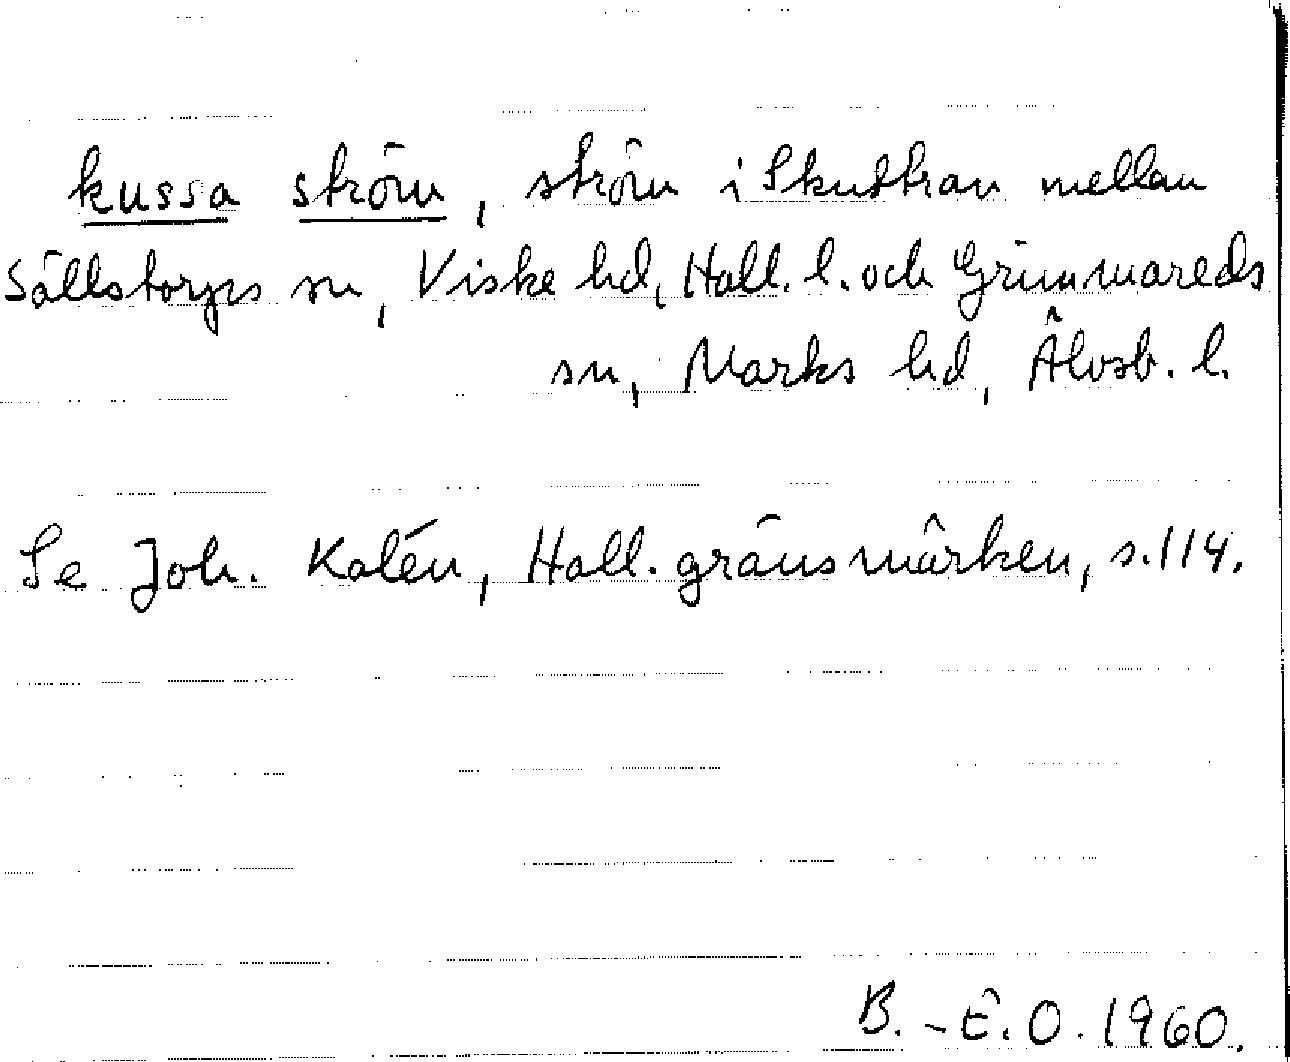 kussa ström, ström i Skuttran mellan
Sällstorps sn, Viske hd, Hall. l. och Grimmareds
sn, Marks hd, Älvsb. l.
Se Joh. Kalén, Hall. gränsmärken, s. 114.
B.-E. O. 1960.